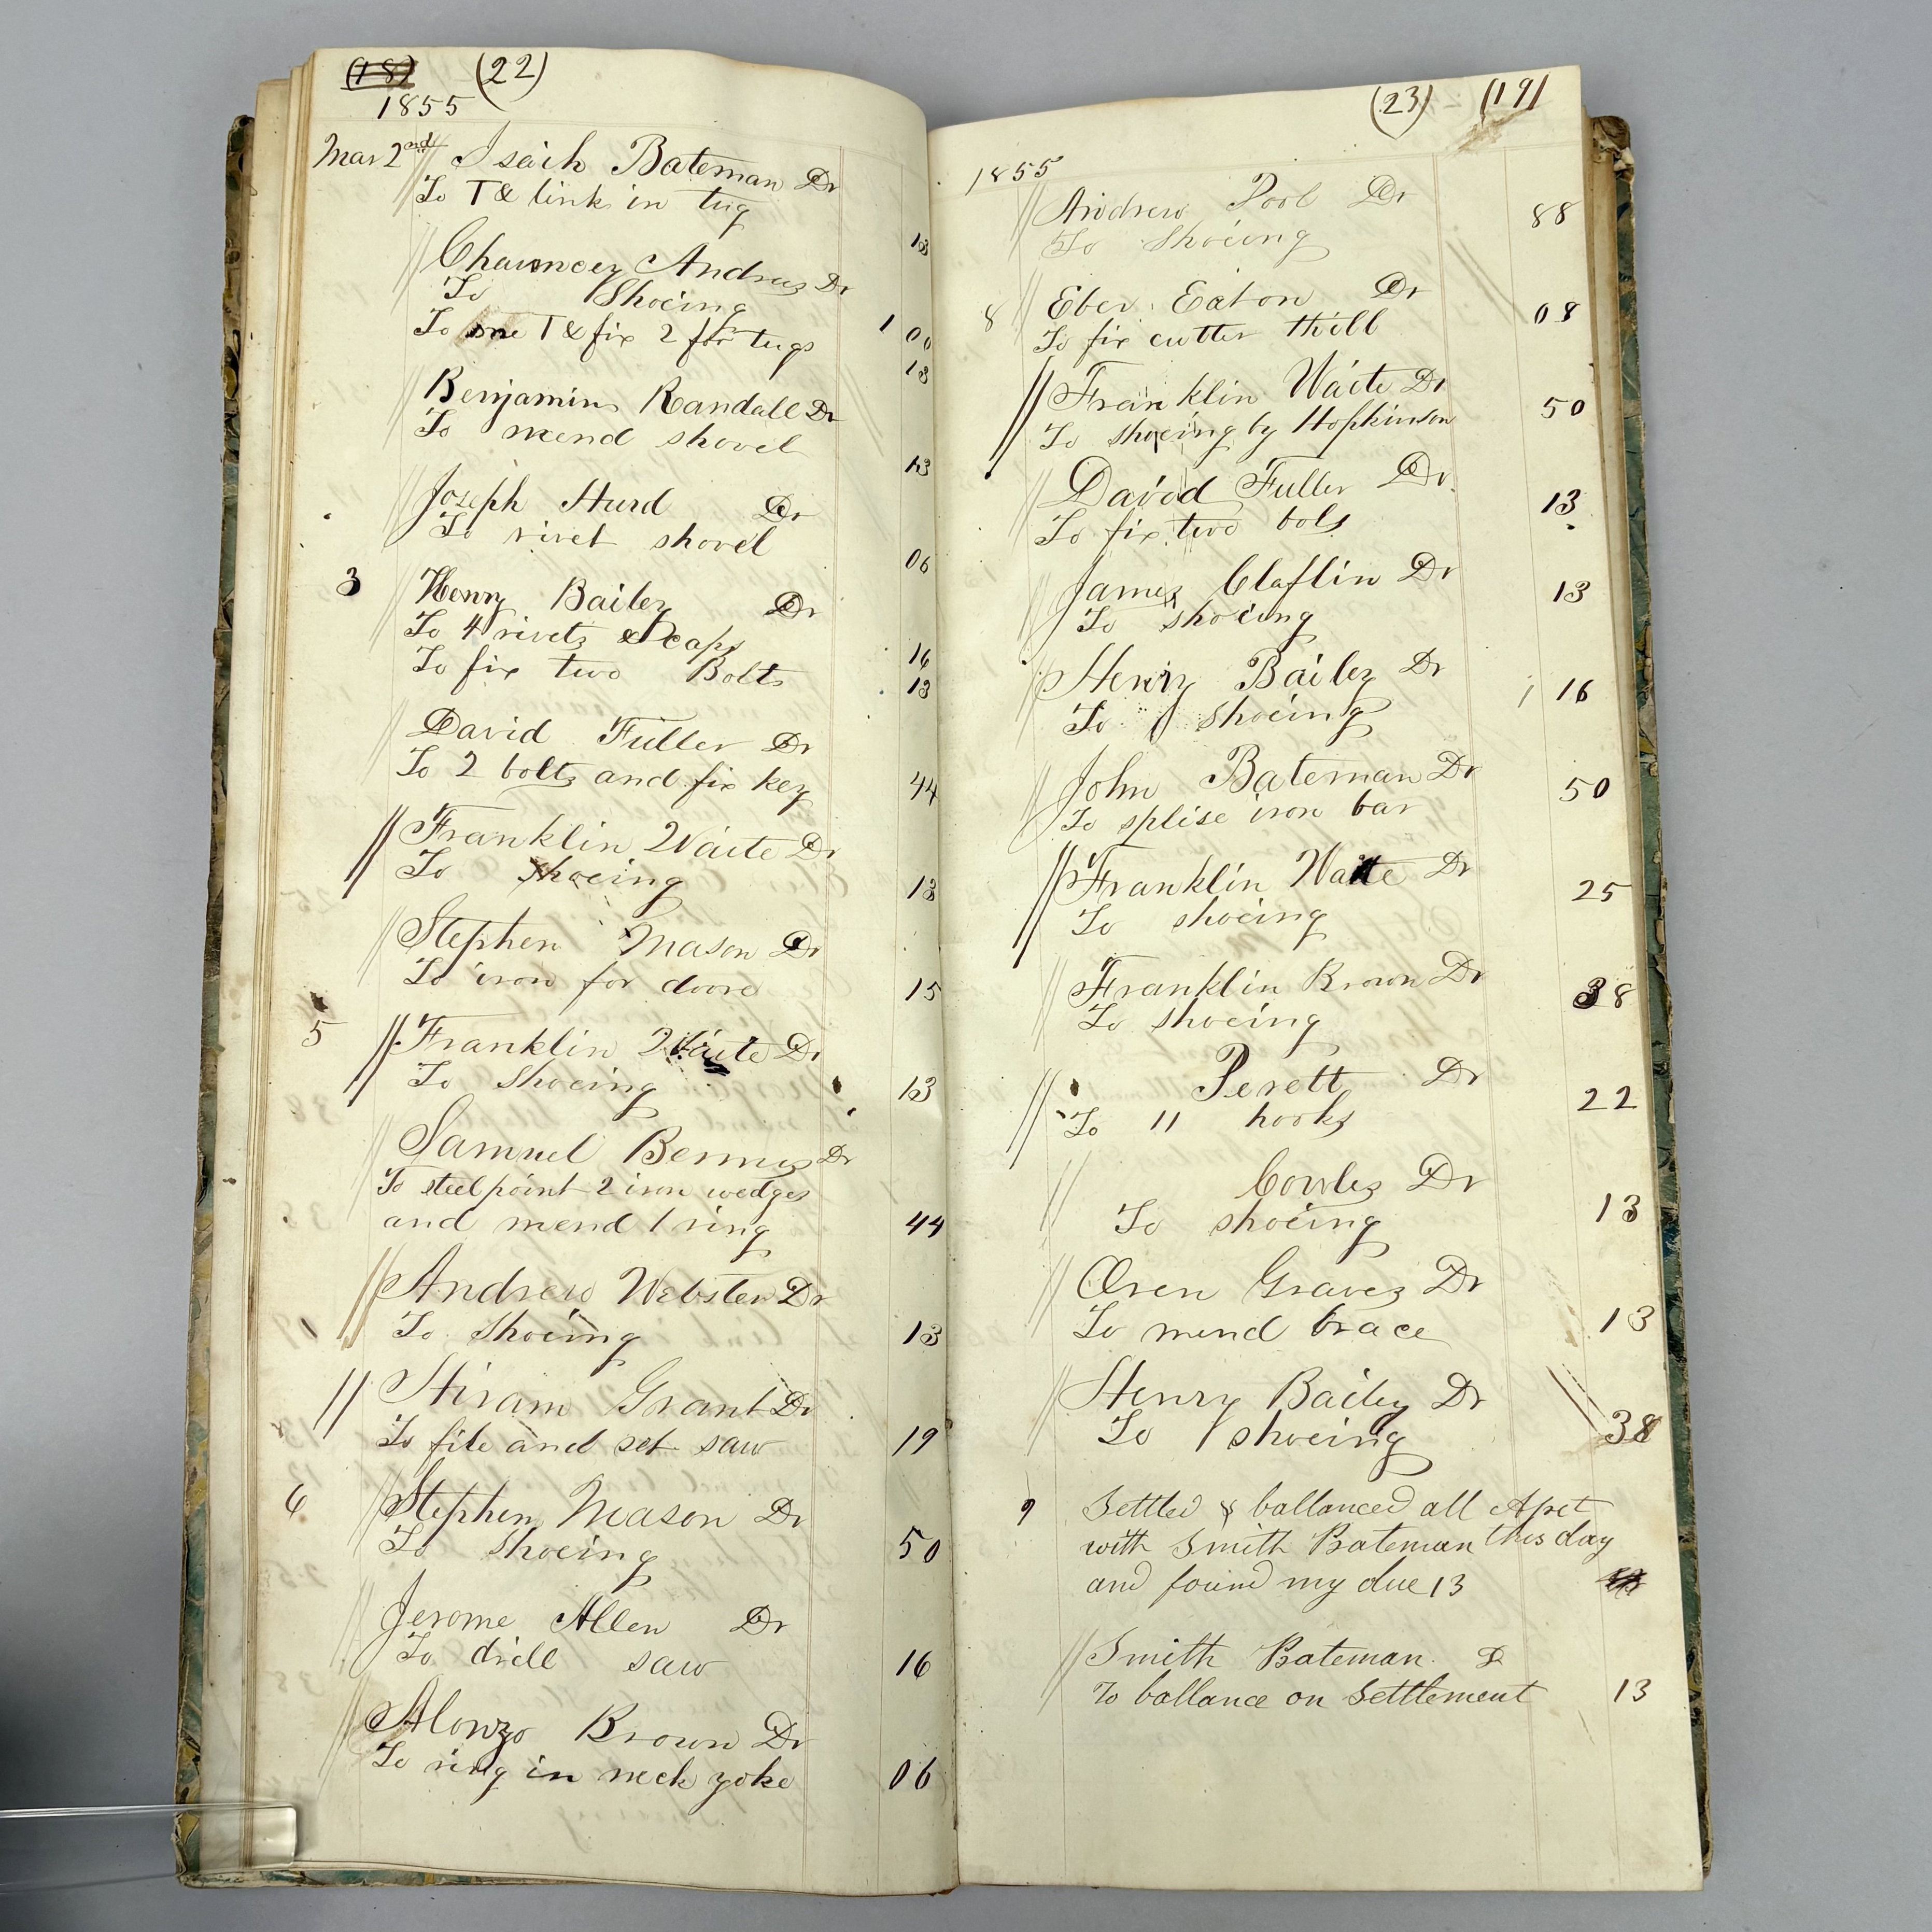 (18) (22)
1855
Mar 2nd Isaih Bateman Dr
To T & link in tug
13
Chauncey Andrus Dr
To Shoeing
1 00
To one T & fix 2 for tugs
13
Benjamin Randall Dr
To mend shovel
13
Joseph Hurd Dr
To rivet shovel
06
3 Henry Bailey Dr
To 4 rivets & caps 16
To fix two Bolts 13
David Fuller Dr
To 2 bolts and fix key 44
Franklin Waite Dr
To shoeing 13
Stephen Mason Dr
To iron for doore 15
5 Franklin Waite Dr
To Shoeing 13
Samuel Dr
To steel point 2 iron wedges
and mend 1 ring 44
Andrew Webster Dr
To Shoeing 13
Hiram Grant Dr
To file and set saw 19
6 Stephen Mason Dr
To Shoeing 50
Jerome Allen Dr
To drill saw 16
Alonzo Brown Dr
To ring in neck yoke 06
(23) (19)
1855
Andrew Pool Dr
To Shoeing 88
8 Eber Eaton Dr
To fix cutter thill 08
Franklin Waite Dr
To shoeing by Hopkinson 50
David Fuller Dr
To fix two bols 13
James Claflin Dr
To shoeing 13
Henry Bailey Dr
To shoeing 1 16
John Bateman Dr
To splise iron bar 50
Franklin Waite Dr
To shoeing 25
Franklin Brown Dr
To shoeing 38
Perett Dr
To 11 hooks 22
Cowles Dr
To shoeing 13
Oren Graves Dr
To mend brace 13
Henry Bailey Dr
To shoeing 38
9 Settled & ballanced all Apct
with Smith Bateman this day
and found my due 13
Smith Bateman Dr
To ballance on Settlement 13